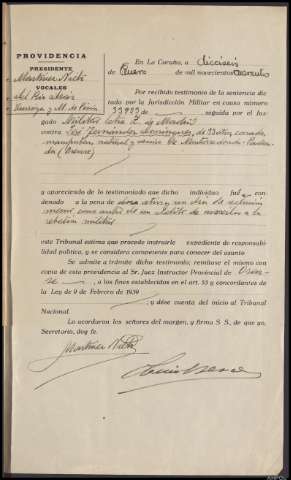 PROVIDENCIA
PRESIDENTE
Martínez Nieto
VOCALES
del Río
y M. de
En La Coruña, a dieciseis
de Enero de mil novecientos cuarenta
Por recibido testimonio de la sentencia dic
tada por la Jurisdicción Militar en causa número
seguida por el Juz
gado Militar de Madrid
contra José Fernández Domínguez, de 33 años, casado,
natural y vecino de
(Orense)
y apareciendo de lo testimoniado que dicho individuo fué con
denado a la pena de doce años y un día de reclusión
menor como autor de un delito de a la
rebelión militar
este Tribunal estima que procede instruirle expediente de responsabi
lidad política, y se considera competente para conocer del asunto
Se admite a trámite dicho testimonio; remítase el mismo con
copia de esta providencia al Sr. Juez Instructor Provincial de Oren
se, a los fines establecidos en el art. 53 y concordantes de la
Ley de 9 de Febrero de 1939
y dése cuenta del inicio al Tribunal
Nacional.
Lo acordaron los señores del margen, y firma S. S., de que yo,
Secretario, doy fe.
Martínez Nieto